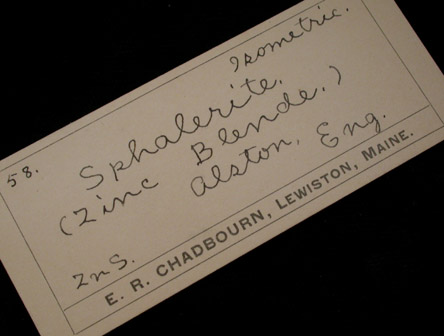 58.
Isometric.
Sphalerite.
(Zinc Blende.)
Alston, Eng.
ZnS.
E. R. CHADBOURN, LEWISTON, MAINE.